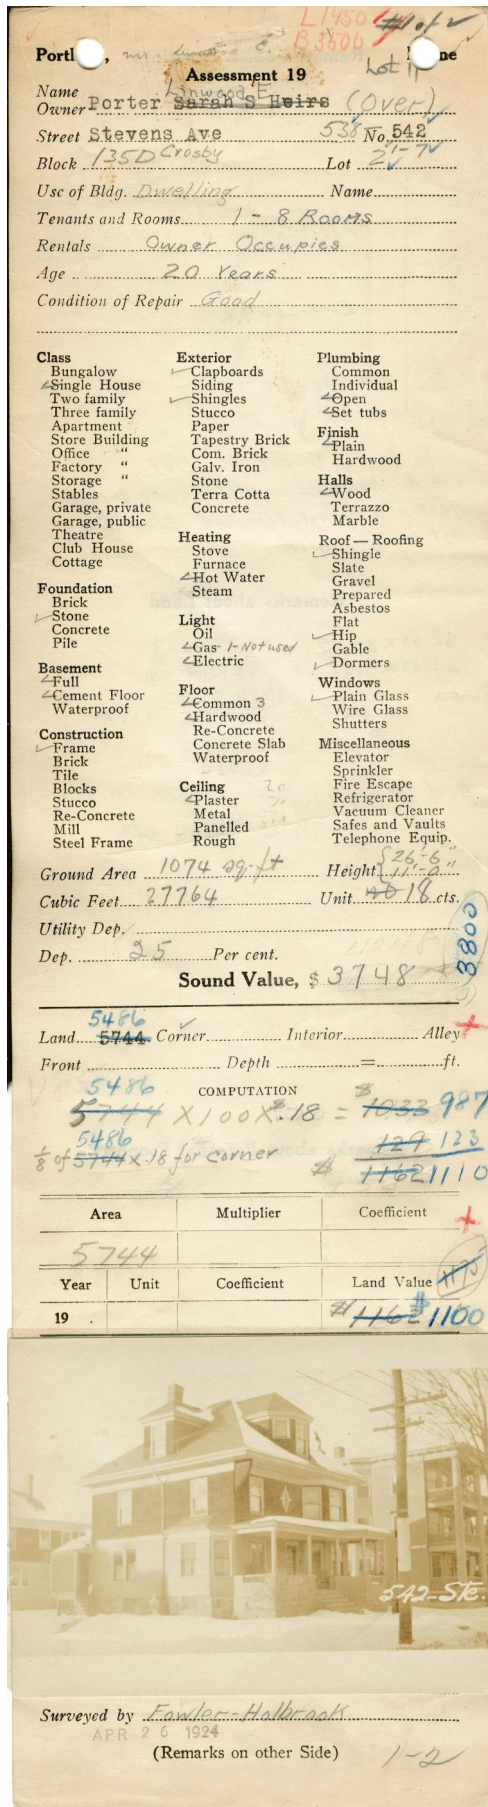 L1450 #1 of
B3600
Portl , Mr. Linwood E. ne
Assessment 19 Lot 11
Name Linwood E.
Owner Porter Sarah S Heirs (Over)
Street Stevens Ave 538 No. 542
Block 135D Crosby Lot 2 1-7
Use of Bldg. Dwelling Name
Tenants and Rooms 1 - 8 Rooms
Rentals Owner Occupies
Age 20 Years
Condition of Repair Good
Class
Bungalow
Single House
Two family
Three family
Apartment
Store Building
Office "
Factory "
Storage "
Stables
Garage, private
Garage, public
Theatre
Club House
Cottage
Foundation
Brick
Stone
Concrete
Pile
Basement
Full
Cement Floor
Waterproof
Construction
Frame
Brick
Tile
Blocks
Stucco
Re-Concrete
Mill
Steel Frame
Exterior
Clapboards
Siding
Shingles
Stucco
Paper
Tapestry Brick
Com. Brick
Galv. Iron
Stone
Terra Cotta
Concrete
Heating
Stove
Furnace
Hot Water
Steam
Light
Oil
Gas - 1-Not used
Electric
Floor
Common 3
Hardwood
Re-Concrete
Concrete Slab
Waterproof
Ceiling
Plaster
Metal
Panelled
Rough
Plumbing
Common
Individual
Open
Set tubs
Finish
Plain
Hardwood
Halls
Wood
Terrazzo
Marble
Roof — Roofing
Shingle
Slate
Gravel
Prepared
Asbestos
Flat
Hip
Gable
Dormers
Windows
Plain Glass
Wire Glass
Shutters
Miscellaneous
Elevator
Sprinkler
Fire Escape
Refrigerator
Vacuum Cleaner
Safes and Vaults
Telephone Equip.
Ground Area 1074 sq-ft Height { 26'-6" 11'-0"
Cubic Feet 27764 Unit 20 18 cts.
Utility Dep.
Dep. 25 Per cent.
3800
Sound Value, $ 3748
5486
Land 5744 Corner Interior Alley
Front Depth = ft.
5486 COMPUTATION
5744 X 100 X $.18 = $1033 987
5486 129 123
1/8 of 5744 x .18 for corner $ 1162 1110
Area Multiplier Coefficient
5744
Year Unit Coefficient Land Value 1175
19 . $1162 $1100
542-Ste.
Surveyed by Fowler-Holbrook
APR 26 1924
(Remarks on other Side) 1-2